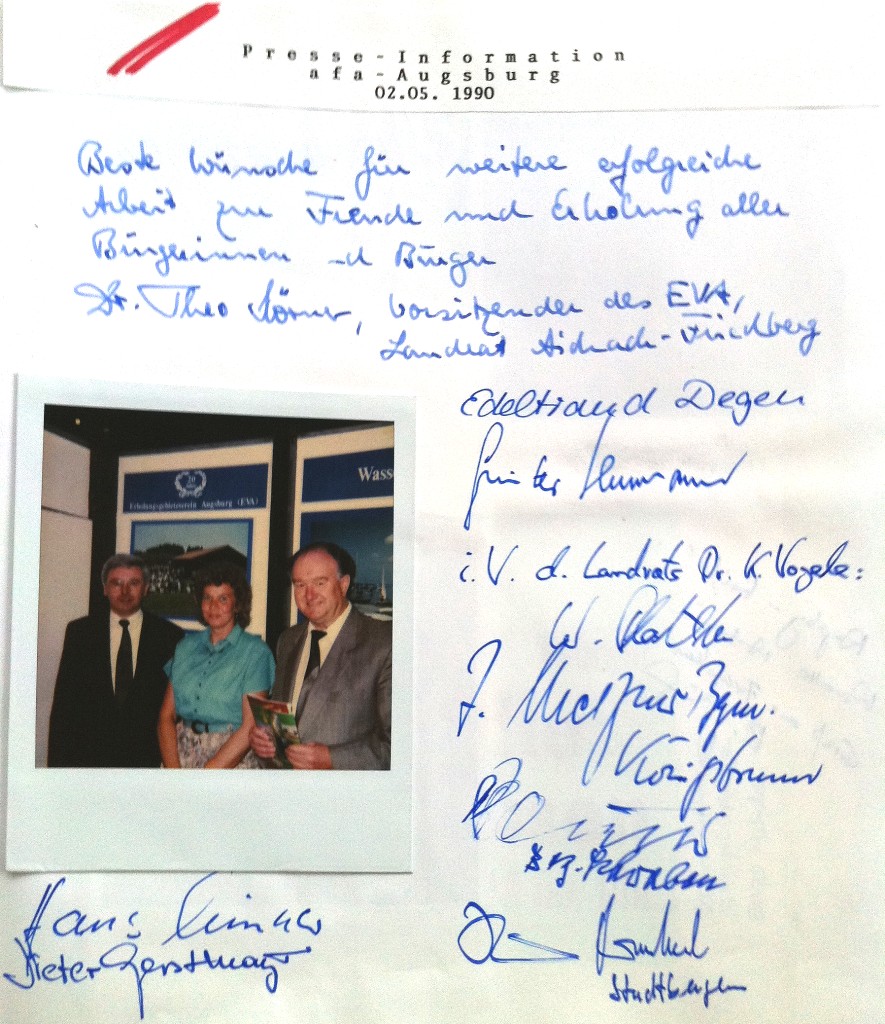 Presse-Information
afa-Augsburg
02.05. 1990
Beste Wünsche für weitere erfolgreiche
Arbeit zur Freude und Erholung aller
Bürgerinnen und Bürger
Dr. Theo Körner, Vorsitzender des EVA,
Landrat Aichach-Friedberg
Edeltraud Degen
20
Erholungsgebieteverein Augsburg (EVA)
Wass
Günter
i.V. d. Landrats Dr. K. Vogele:
W.
F. Metzner, Bgm.
Königsbrunn
Bez. Schwaben
Hans
Dieter Gerstmayr
Stadtbergen